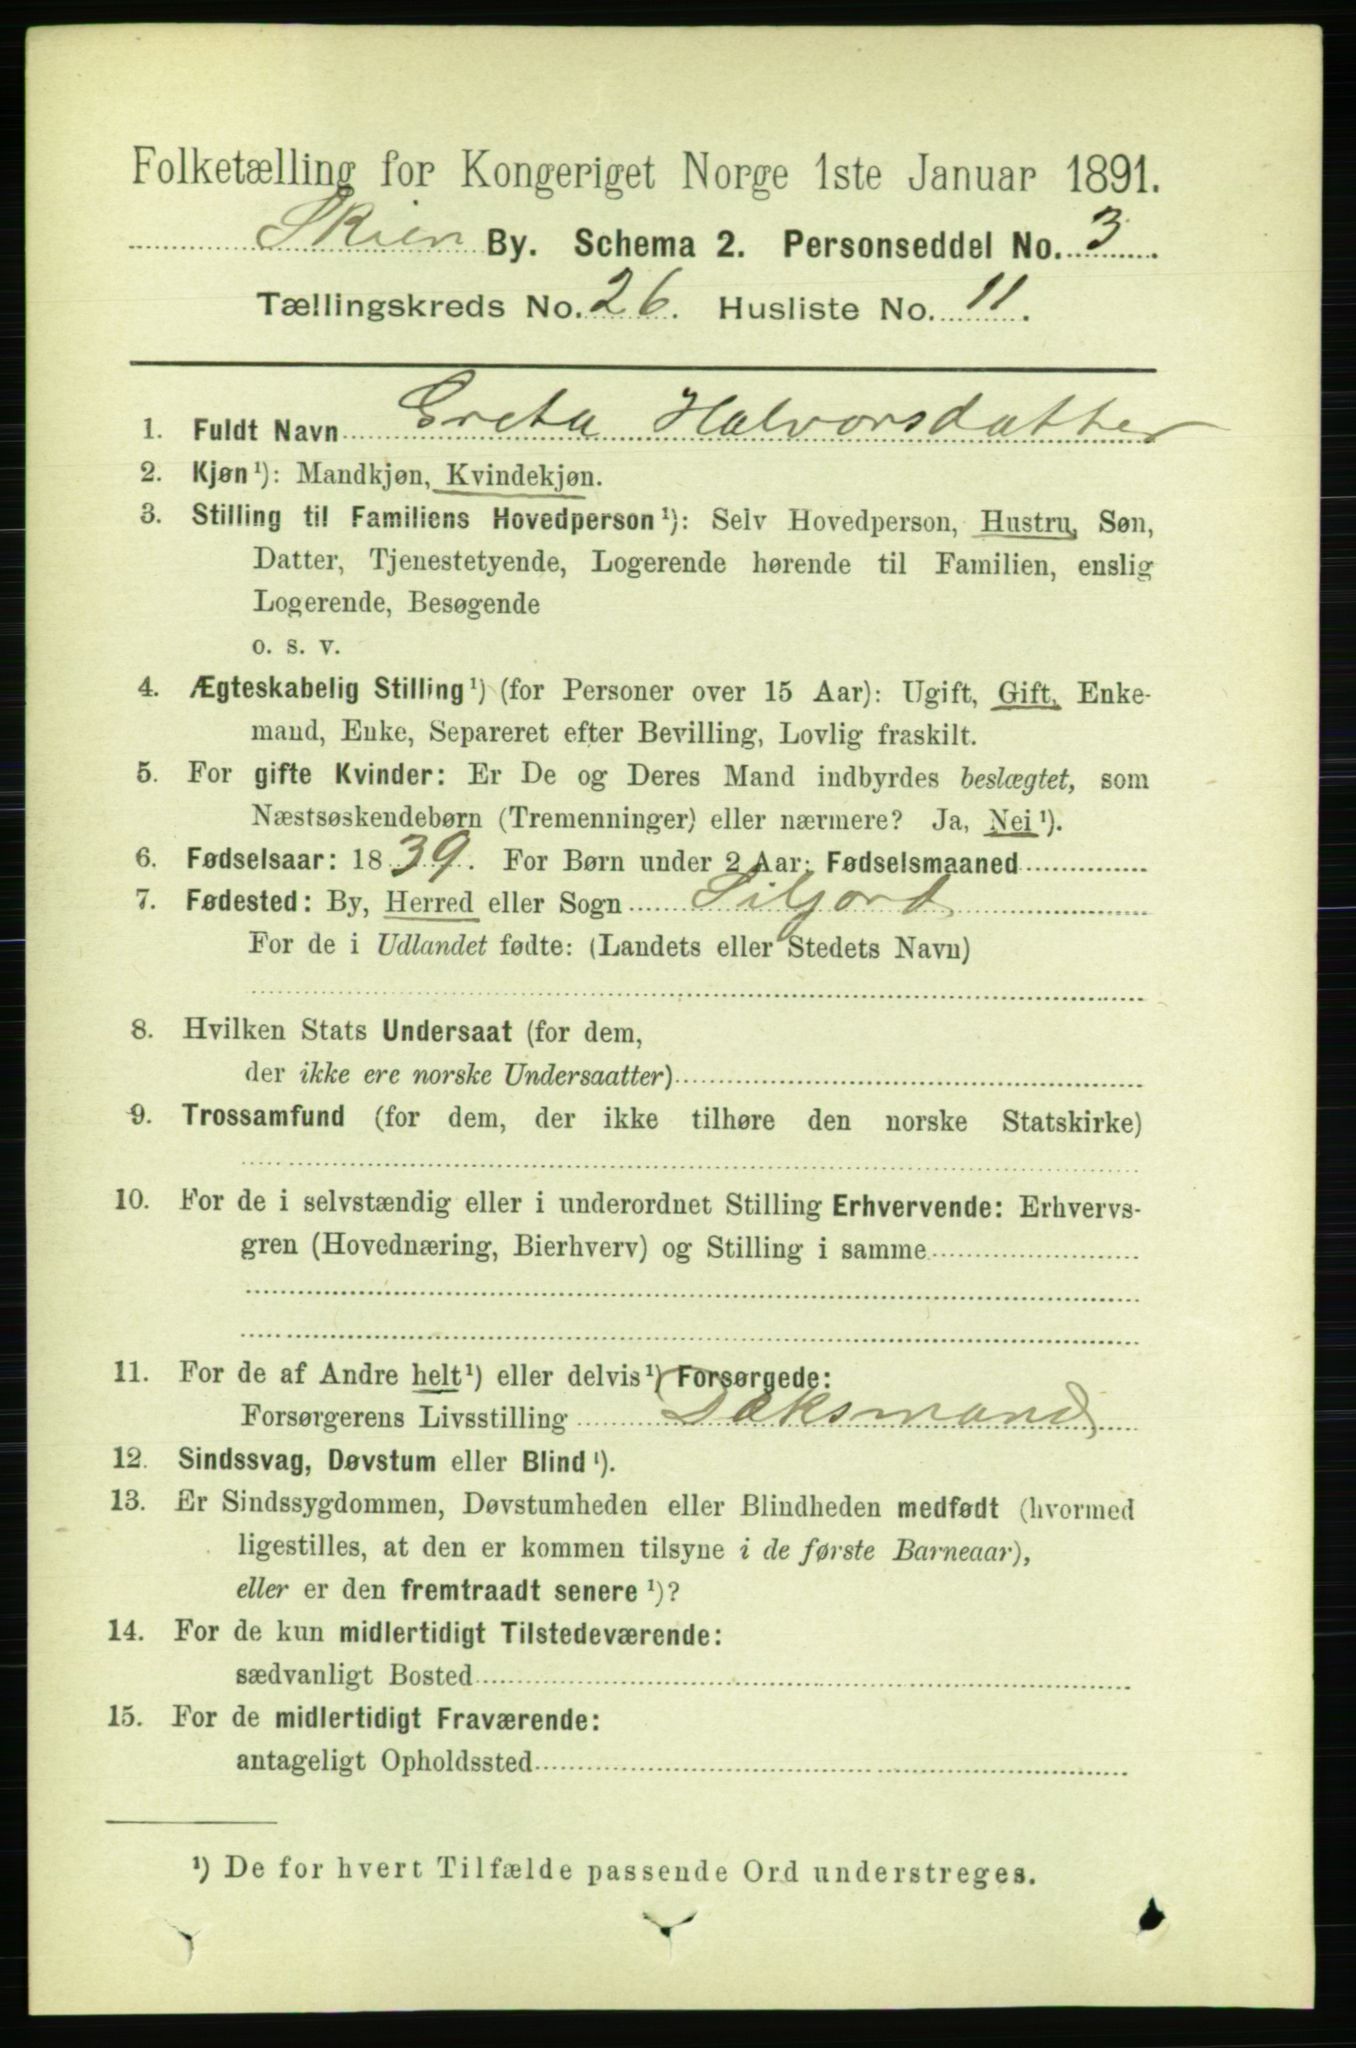 Folketælling for Kongeriget Norge 1ste Januar 1891.
Skien By. Schema 2. Personseddel No. 3
Tællingskreds No. 26. Husliste No. 11.
1. Fuldt Navn Greta Halvorsdatter
2. Kjøn¹): Mandkjøn, Kvindekjøn.
3. Stilling til Familiens Hovedperson¹): Selv Hovedperson, Hustru, Søn,
Datter, Tjenestetyende, Logerende hørende til Familien, enslig
Logerende, Besøgende
o. s. v.
4. Ægteskabelig Stilling¹) (for Personer over 15 Aar): Ugift, Gift, Enke-
mand, Enke, Separeret efter Bevilling, Lovlig fraskilt.
5. For gifte Kvinder: Er De og Deres Mand indbyrdes beslægtet, som
Næstsøskendebørn (Tremenninger) eller nærmere? Ja, Nei¹).
6. Fødselsaar: 1839. For Børn under 2 Aar: Fødselsmaaned
7. Fødested: By, Herred eller Sogn Siljord
For de i Udlandet fødte: (Landets eller Stedets Navn)
8. Hvilken Stats Undersaat (for dem,
der ikke ere norske Undersaatter)
9. Trossamfund (for dem, der ikke tilhøre den norske Statskirke)
10. For de i selvstændig eller i underordnet Stilling Erhvervende: Erhvervs-
gren (Hovednæring, Bierhverv) og Stilling i samme
11. For de af Andre helt¹) eller delvis¹) Forsørgede:
Forsørgerens Livsstilling Daksmand
12. Sindssvag, Døvstum eller Blind¹).
13. Er Sindssygdommen, Døvstumheden eller Blindheden medfødt (hvormed
ligestilles, at den er kommen tilsyne i de første Barneaar),
eller er den fremtraadt senere¹)?
14. For de kun midlertidigt Tilstedeværende:
sædvanligt Bosted
15. For de midlertidigt Fraværende:
antageligt Opholdssted
¹) De for hvert Tilfælde passende Ord understreges.